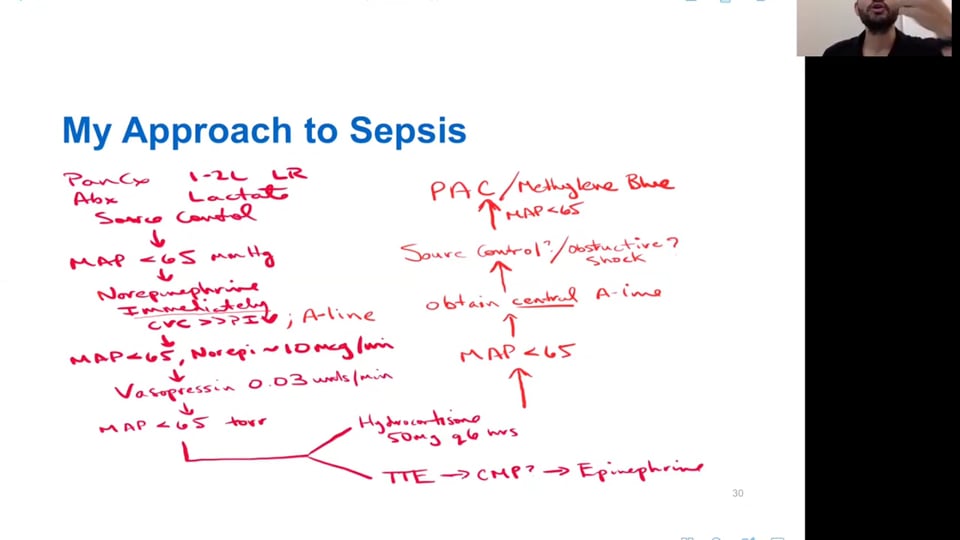 My Approach to Sepsis
PanCx 1-2L LR
Abx Lactate
Source Control
↓
MAP <65 mmHg
↓
Norepinephrine
Immediately
CVC >>PIV ; A-line
↓
MAP<65, Norepi ~10mcg/min
↓
Vasopressin 0.03 units/min
↓
MAP <65 torr
Hydrocortisone
50mg q6 hrs
TTE → CMP? → Epinephrine
PAC/Methylene Blue
↑ MAP<65
Source Control?/Obstructive?
Shock
↑
obtain central A-line
↑
MAP <65
↑
30